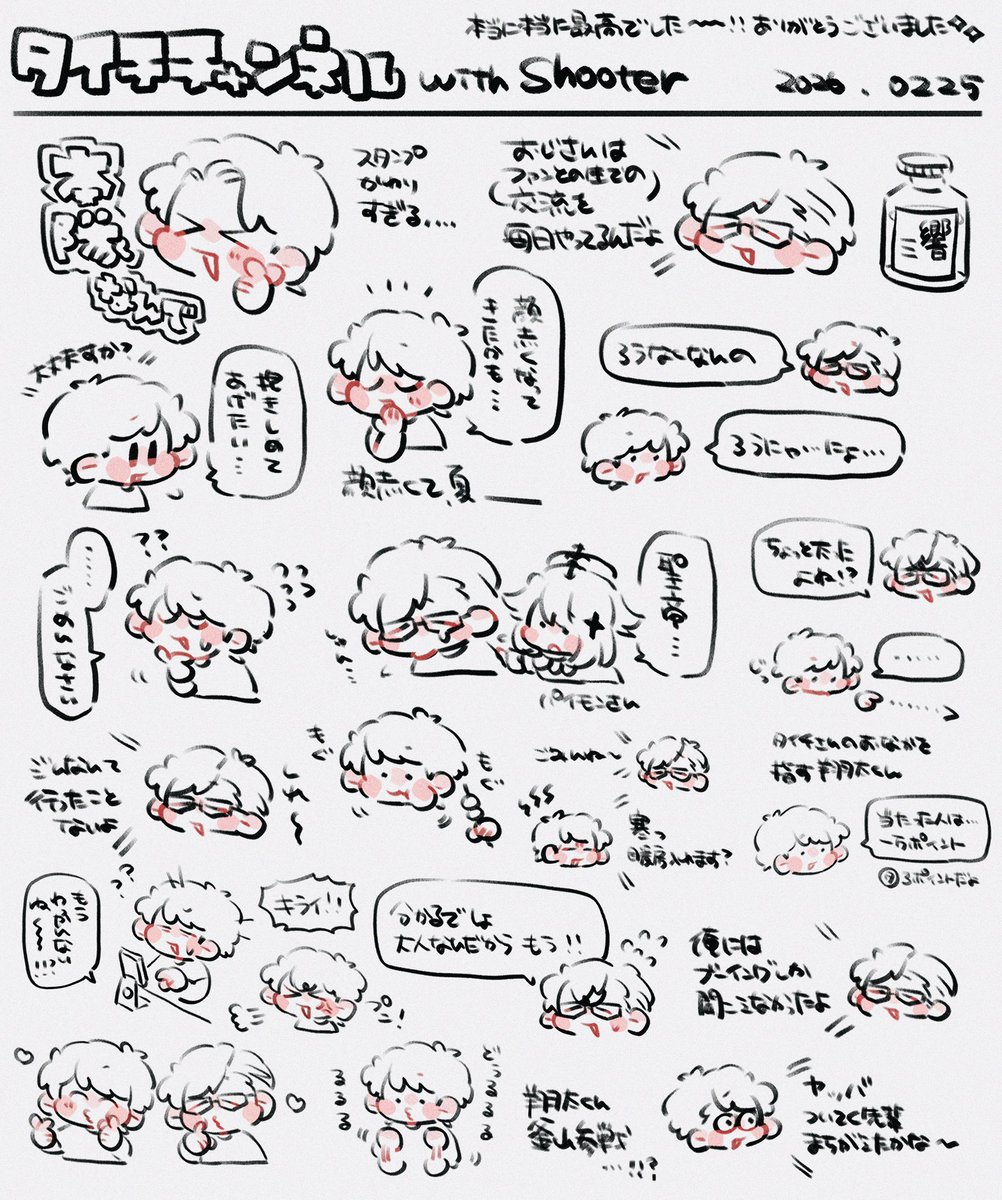 本当に本当に最高でした〜〜!! ありがとうございました
タイチチャンネル with Shooter
2026.0225
スタンプ
がかり
すぎる....
おじさんは
ファンとの生での
交流を
毎日やってるんだよ
響
なんで
大丈夫すか?
抱きしめて
あげたい…
顔赤くなって
きたかも…
顔赤くて、夏
ろうなくなんの
ろうにゃ…にょ…
??
聖章…
パイモンさん
ちょっと太った
よね!?
......
タイチさんのおなかを
指す翔太くん
こんなんて
行ったこと
ないよ
しれ〜
もぐ
もぐ
ごめんね〜
寒っ
暖房入れます?
当たった人は…
一万ポイント
3ポイントだよ
もう
わかんない
ね〜〜…
??
キライ!!
プン!
分かるでしょ
大人なんだから もう!!
俺には
ブーイングしか
聞こえなかったよ
どぅるるるる
るるるる
翔太くん
釜山参戦
…!!?
ヤッバ
ついてく先輩
まちがえたかな〜